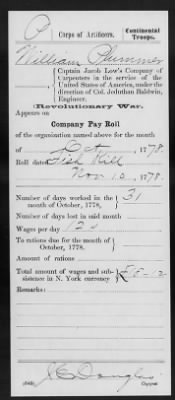 P | Corps of Artificers. | Continental Troops.
William Plummer
Captain Jacob Low's Company of
Carpenters in the service of the
United States of America, under the
direction of Col. Jeduthan Baldwin,
Engineer.
Revolutionary War.
Appears on
Company Pay Roll
of the organization named above for the month
of Oct, 1778.
Roll dated Fish Kill
Nov 12, 1778.
Number of days worked in the month of October, 1778, 31
Number of days lost in said month
Wages per day 12s
To rations due for the month of October, 1778,
Amount of rations
Total amount of wages and subsistence in N. York currency
Remarks:
Copyist.